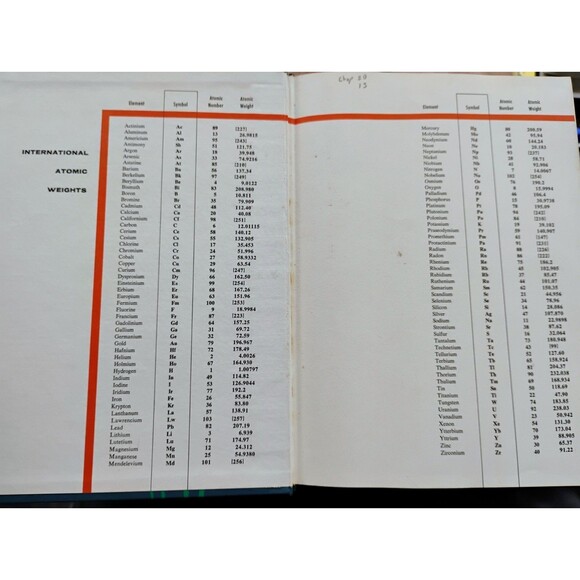 INTERNATIONAL
ATOMIC
WEIGHTS
Element Symbol Atomic Number Atomic Weight
Actinium Ac 89 [227]
Aluminum Al 13 26.9815
Americium Am 95 [243]
Antimony Sb 51 121.75
Argon Ar 18 39.948
Arsenic As 33 74.9216
Astatine At 85 [210]
Barium Ba 56 137.34
Berkelium Bk 97 [249]
Beryllium Be 4 9.0122
Bismuth Bi 83 208.980
Boron B 5 10.811
Bromine Br 35 79.909
Cadmium Cd 48 112.40
Calcium Ca 20 40.08
Californium Cf 98 [251]
Carbon C 6 12.01115
Cerium Ce 58 140.12
Cesium Cs 55 132.905
Chlorine Cl 17 35.453
Chromium Cr 24 51.996
Cobalt Co 27 58.9332
Copper Cu 29 63.54
Curium Cm 96 [247]
Dysprosium Dy 66 162.50
Einsteinium Es 99 [254]
Erbium Er 68 167.26
Europium Eu 63 151.96
Fermium Fm 100 [253]
Fluorine F 9 18.9984
Francium Fr 87 [223]
Gadolinium Gd 64 157.25
Gallium Ga 31 69.72
Germanium Ge 32 72.59
Gold Au 79 196.967
Hafnium Hf 72 178.49
Helium He 2 4.0026
Holmium Ho 67 164.930
Hydrogen H 1 1.00797
Indium In 49 114.82
Iodine I 53 126.9044
Iridium Ir 77 192.2
Iron Fe 26 55.847
Krypton Kr 36 83.80
Lanthanum La 57 138.91
Lawrencium Lw 103 [257]
Lead Pb 82 207.19
Lithium Li 3 6.939
Lutetium Lu 71 174.97
Magnesium Mg 12 24.312
Manganese Mn 25 54.9380
Mendelevium Md 101 [256]
15
Element Symbol Atomic Number Atomic Weight
Mercury Hg 80 200.59
Molybdenum Mo 42 95.94
Neodymium Nd 60 144.24
Neon Ne 10 20.183
Neptunium Np 93 [237]
Nickel Ni 28 58.71
Niobium Nb 41 92.906
Nitrogen N 7 14.0067
Nobelium No 102 [254]
Osmium Os 76 190.2
Oxygen O 8 15.9994
Palladium Pd 46 106.4
Phosphorus P 15 30.9738
Platinum Pt 78 195.09
Plutonium Pu 94 [242]
Polonium Po 84 [210]
Potassium K 19 39.102
Praseodymium Pr 59 140.907
Promethium Pm 61 [147]
Protactinium Pa 91 [231]
Radium Ra 88 [226]
Radon Rn 86 [222]
Rhenium Re 75 186.2
Rhodium Rh 45 102.905
Rubidium Rb 37 85.47
Ruthenium Ru 44 101.07
Samarium Sm 62 150.35
Scandium Sc 21 44.956
Selenium Se 34 78.96
Silicon Si 14 28.086
Silver Ag 47 107.870
Sodium Na 11 22.9898
Strontium Sr 38 87.62
Sulfur S 16 32.064
Tantalum Ta 73 180.948
Technetium Tc 43 [99]
Tellurium Te 52 127.60
Terbium Tb 65 158.924
Thallium Tl 81 204.37
Thorium Th 90 232.038
Thulium Tm 69 168.934
Tin Sn 50 118.69
Titanium Ti 22 47.90
Tungsten W 74 183.85
Uranium U 92 238.03
Vanadium V 23 50.942
Xenon Xe 54 131.30
Ytterbium Yb 70 173.04
Yttrium Y 39 88.905
Zinc Zn 30 65.37
Zirconium Zr 40 91.22